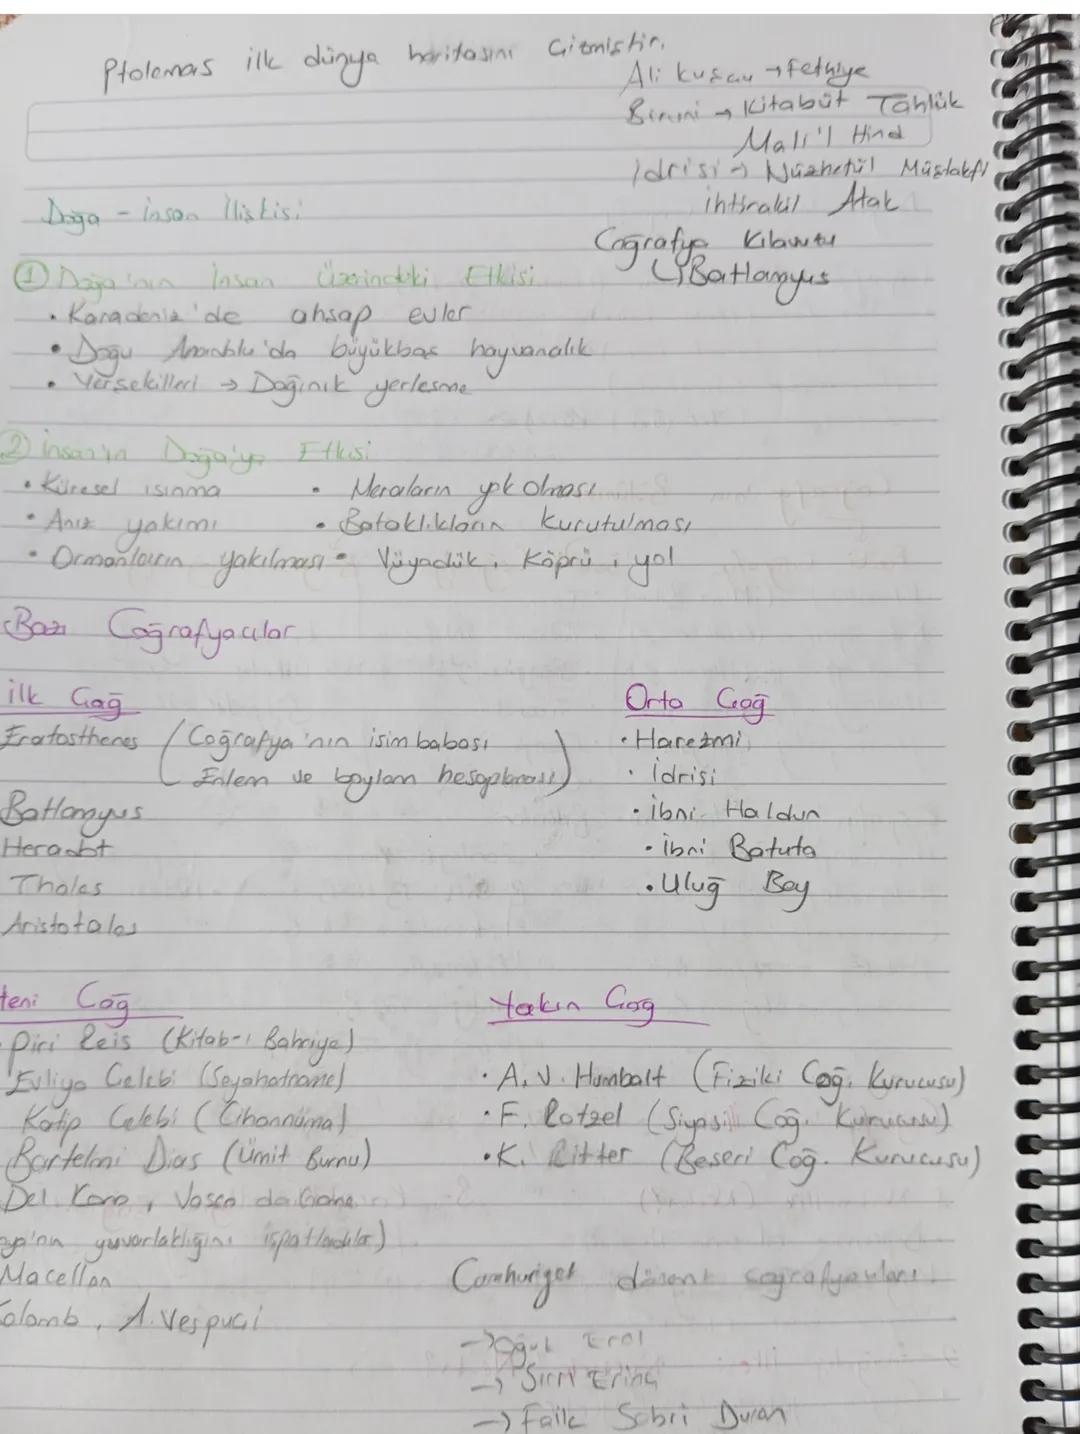 Ptolemas ilk dünya haritasını Çizmiştir.
Ali Kuşcu → Fethiye
Biruni → Kitabüt Tahlük
Mali'l Hind
İdrisi → Nüzhetül Müştakfi
ihtirakil Afak
Coğrafya Kılavuzu
↳ Batlamyus
Doğa - insan İlişkisi
① Doğa'nın İnsan Üzerindeki Etkisi
• Karadeniz'de ahşap evler
• Doğu Anadolu'da büyükbaş hayvancılık
• Yerşekilleri → Dağınık yerleşme
② insan'ın Doğa'ya Etkisi
• Küresel ısınma • Meraların yok olması
• Anız yakımı • Bataklıkların kurutulması
• Ormanların yakılması • Vüyadük, Köprü, yol
Bazı Coğrafyacılar
ilk Çağ
Eratosthenes (Coğrafya'nın isim babası
Enlem ve boylam hesaplaması)
Batlamyus
Heradot
Thales
Aristotales
Orta Çağ
• Harezmi
• İdrisi
• İbni Haldun
• İbni Batuta
• Uluğ Bey
Yeni Çağ
Piri Reis (Kitab-ı Bahriye)
Evliya Çelebi (Seyahatname)
Katip Çelebi (Cihannüma)
Bartelmi Dias (Ümit Burnu)
Del Kano, Vasco da Gama
yuvarlaklığını ispatladılar)
Macellan
Kolomb, A. Vespuci
Yakın Çağ
• A. V. Humbalt (Fiziki Coğ. Kurucusu)
• F. Ratzel (Siyasi Coğ. Kurucusu)
• K. Ritter (Beşeri Coğ. Kurucusu)
Cumhuriyet dönemi coğrafyacıları
→ Oğuz Erol
→ Sırrı Erinç
→ Faik Sabri Duran